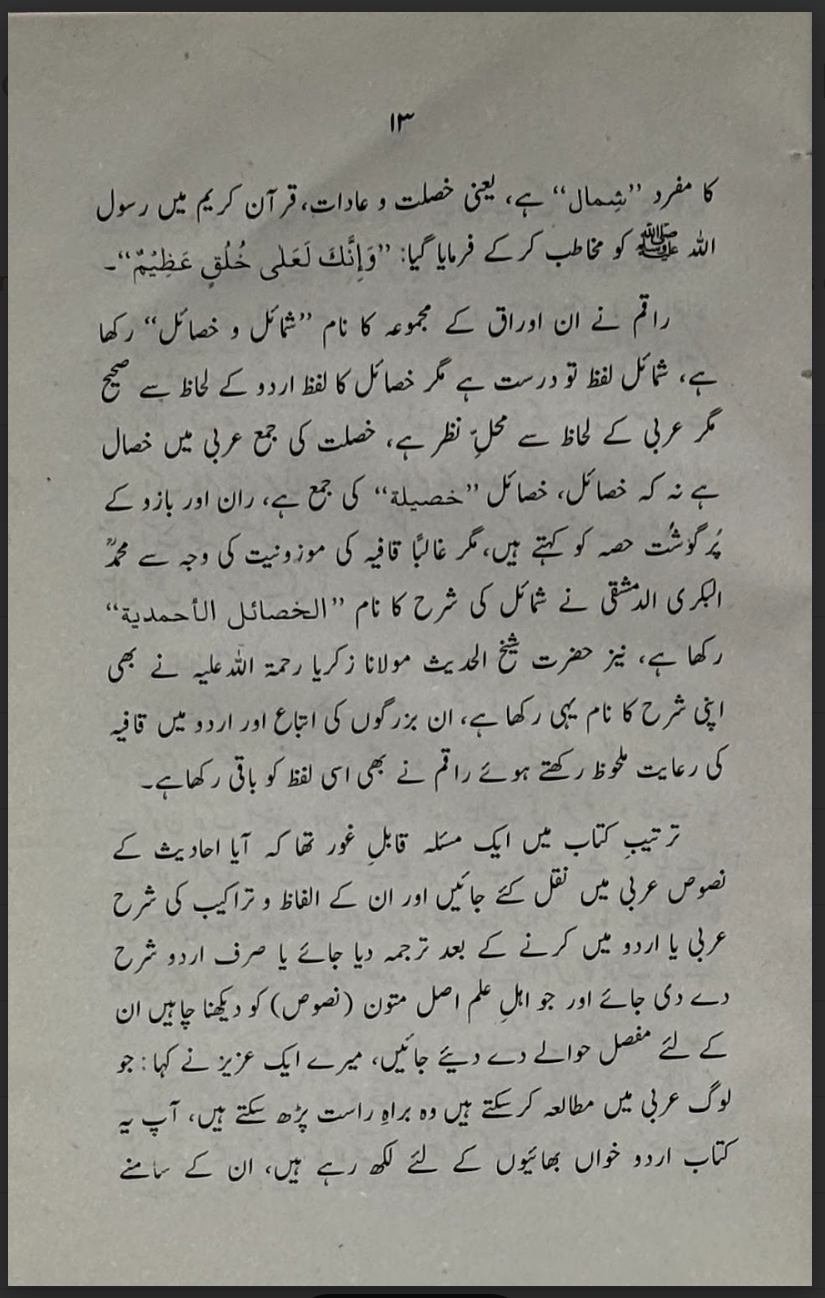 ۱۳
کا مفرد ”شِمال“ ہے، یعنی خصلت و عادات، قرآن کریم میں رسول
اللہ ﷺ کو مخاطب کر کے فرمایا گیا: ”وَإِنَّكَ لَعَلٰى خُلُقٍ عَظِيْمٌ“۔
راقم نے ان اوراق کے مجموعہ کا نام ”شمائل و خصائل“ رکھا
ہے، شمائل لفظ تو درست ہے مگر خصائل کا لفظ اردو کے لحاظ سے صحیح
مگر عربی کے لحاظ سے محلِّ نظر ہے، خصلت کی جمع عربی میں خصال
ہے نہ کہ خصائل، خصائل ”خصيلة“ کی جمع ہے، ران اور بازو کے
پُر گوشت حصہ کو کہتے ہیں، مگر غالبًا قافیہ کی موزونیت کی وجہ سے محمدؒ
البکری الدمشقی نے شمائل کی شرح کا نام ”الخصائل الأحمدية“
رکھا ہے، نیز حضرت شیخ الحدیث مولانا زکریا رحمۃ اللہ علیہ نے بھی
اپنی شرح کا نام یہی رکھا ہے، ان بزرگوں کی اتباع اور اردو میں قافیہ
کی رعایت ملحوظ رکھتے ہوئے راقم نے بھی اسی لفظ کو باقی رکھا ہے۔
ترتیبِ کتاب میں ایک مسئلہ قابلِ غور تھا کہ آیا احادیث کے
نصوص عربی میں نقل کئے جائیں اور ان کے الفاظ و تراکیب کی شرح
عربی یا اردو میں کرنے کے بعد ترجمہ دیا جائے یا صرف اردو شرح
دے دی جائے اور جو اہلِ علم اصل متون (نصوص) کو دیکھنا چاہیں ان
کے لئے مفصل حوالے دے دیئے جائیں، میرے ایک عزیز نے کہا: جو
لوگ عربی میں مطالعہ کرسکتے ہیں وہ براہِ راست پڑھ سکتے ہیں، آپ یہ
کتاب اردو خواں بھائیوں کے لئے لکھ رہے ہیں، ان کے سامنے